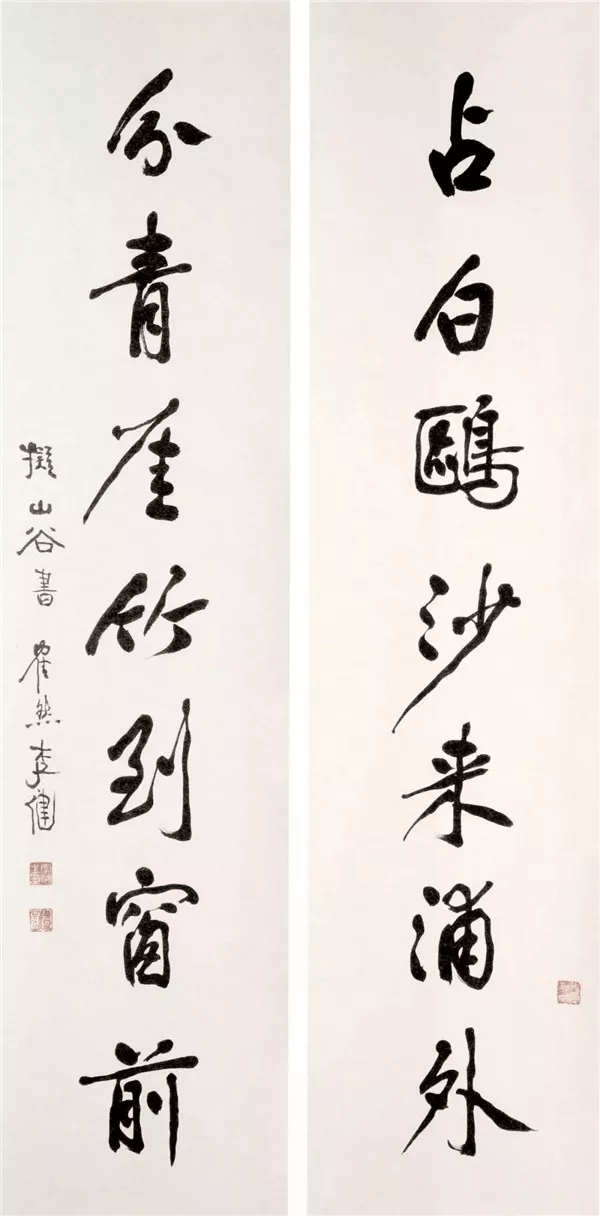 占白鷗沙来浦外
分青崖竹到窗前
擬山谷書 瞿然李健